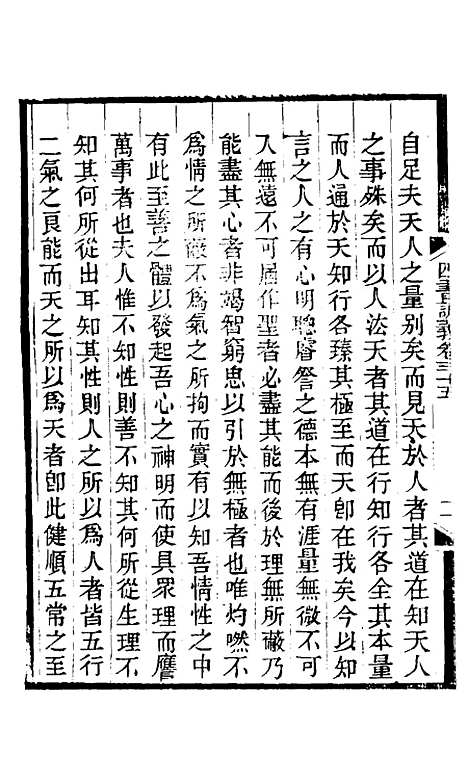 四書訓義卷三十五
自足夫天人之量別矣而見天於人者其道在知天人
之事殊矣而以人法天者其道在行知行各全其本量
而人通於天知行各臻其極至而天卽在我矣今以知
言之人之有心明聰睿詧之德本無有涯量無微不可
入無遠不可屆作聖者必盡其能而後於理無所蔽乃
能盡其心者非竭智窮思以引於無極者也唯灼然不
爲情之所蔽不爲氣之所拘而實有以知吾情性之中
有此至善之體以發起吾心之神明而使具眾理而膺
萬事者也夫人惟不知性則善不知其何所從生理不
知其何所從出耳知其性則人之所以爲人者皆五行
二氣之良能而天之所以爲天者卽此健順五常之至